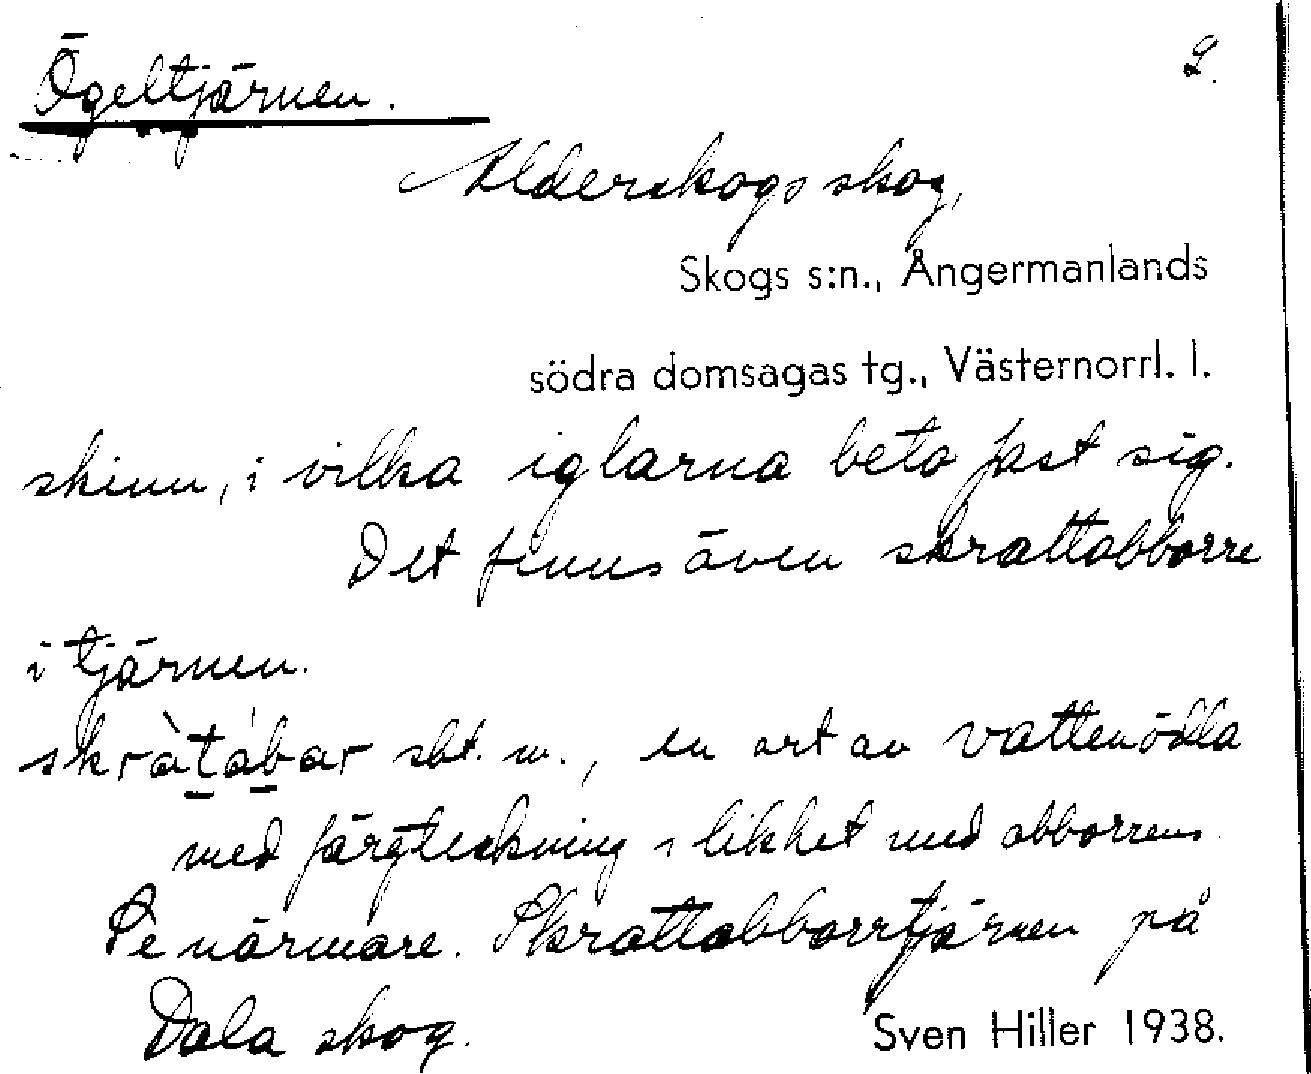 Ögeltjärnen.
2.
Alderskogs skog,
Skogs s:n., Ångermanlands
södra domsagas tg., Västernorrl. l.
skinn, i vilka iglarna beta fast sig.
Det finns även skrattabborre
i tjärnen.
skràtábar sbt. m., en art av vattenödla
med färgteckning i likhet med abborrens
Se närmare. Skrattabborrtjärnen på
Dala skog.
Sven Hiller 1938.